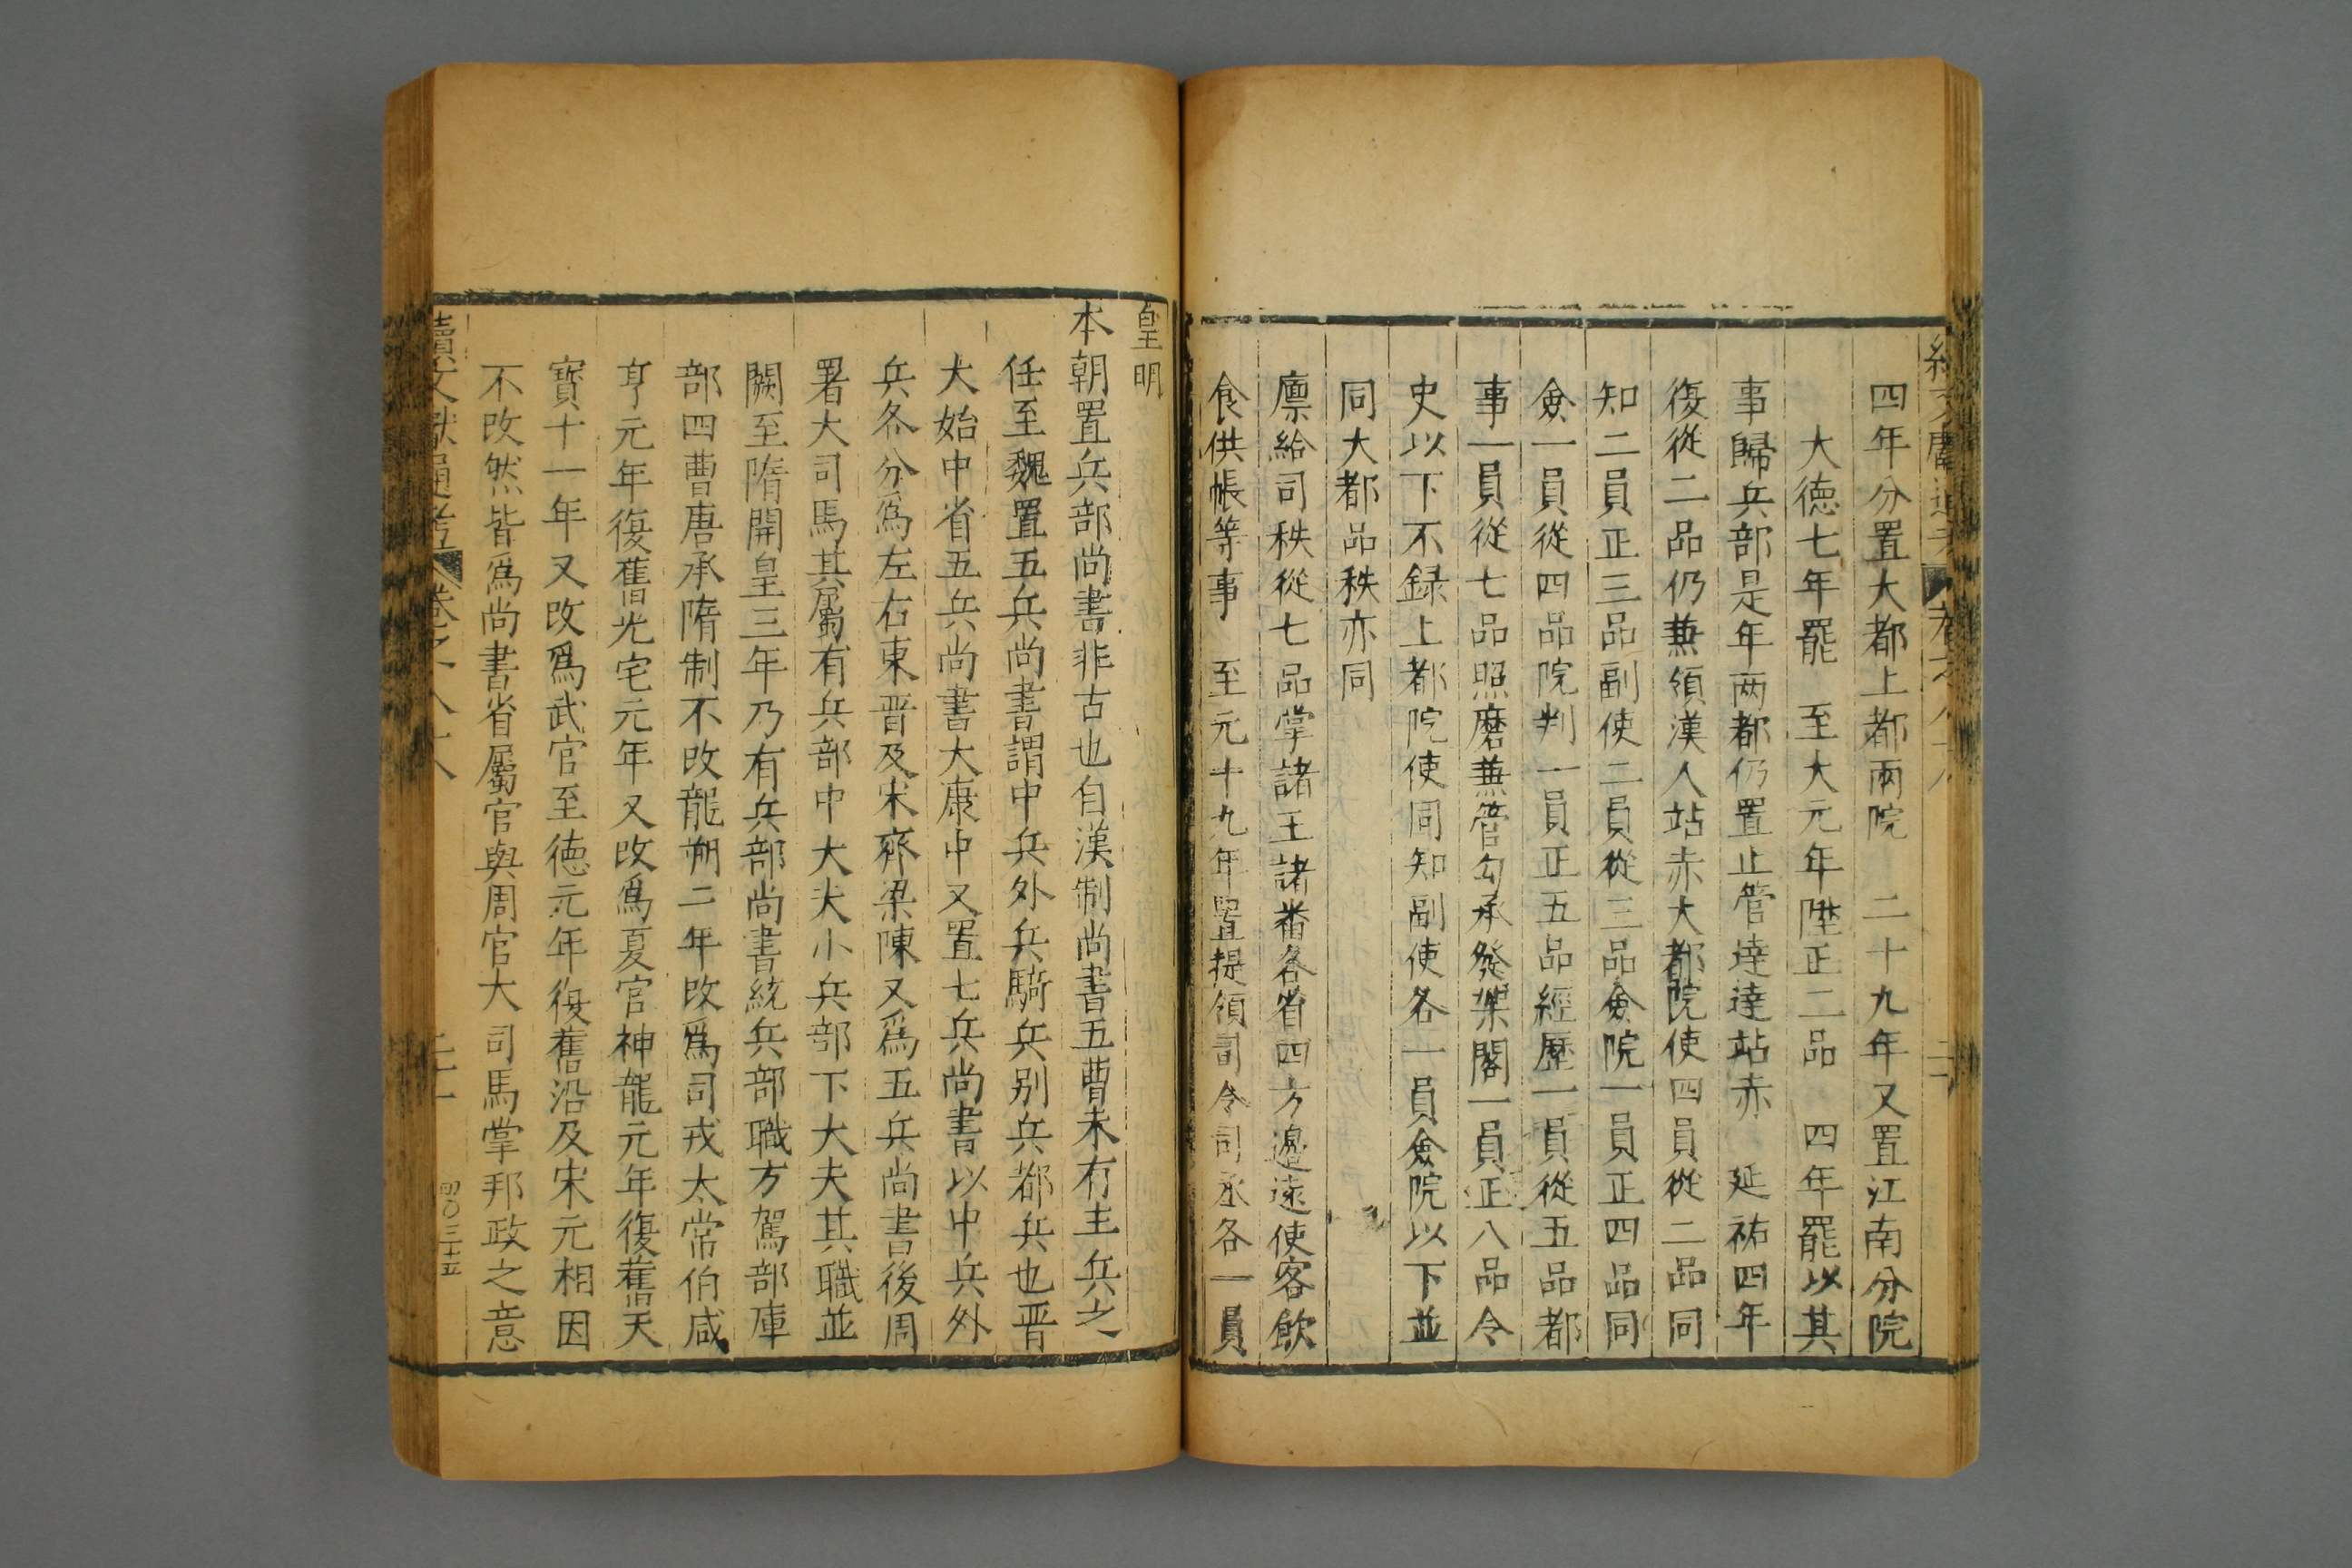 四年分置大都上都兩院　二十九年又置江南分院
大德七年罷　至大元年陞正二品　四年罷以其
事歸兵部是年两都仍置止管達達站赤　延祐四年
復從二品仍兼領漢人站赤大都院使四員從二品同
知二員正三品副使二員從三品僉院一員正四品同
僉一員從四品院判一員正五品經歷一員從五品都
事一員從七品照磨兼管勾承發架閣一員正八品令
史以下不録上都院使同知副使各一員僉院以下並
同大都品秩亦同
廪給司秩從七品掌諸王諸番各省四方邊遠使客飲
食供帳等事　至元十九年置提領司令司丞各一員
皇明
本朝置兵部尚書非古也自漢制尚書五曹未有主兵之
任至魏置五兵尚書謂中兵外兵騎兵别兵都兵也晋
大始中省五兵尚書大康中又置七兵尚書以中兵外
兵各分爲左右東晋及宋齊梁陳又爲五兵尚書後周
署大司馬其屬有兵部中大夫小兵部下大夫其職並
闕至隋開皇三年乃有兵部尚書統兵部職方駕部庫
部四曹唐承隋制不改龍朔二年改爲司戎太常伯咸
亨元年復舊光宅元年又改爲夏官神龍元年復舊天
寳十一年又改爲武官至德元年復舊沿及宋元相因
不改然皆爲尚書省屬官與周官大司馬掌邦政之意
續文獻通考 卷之